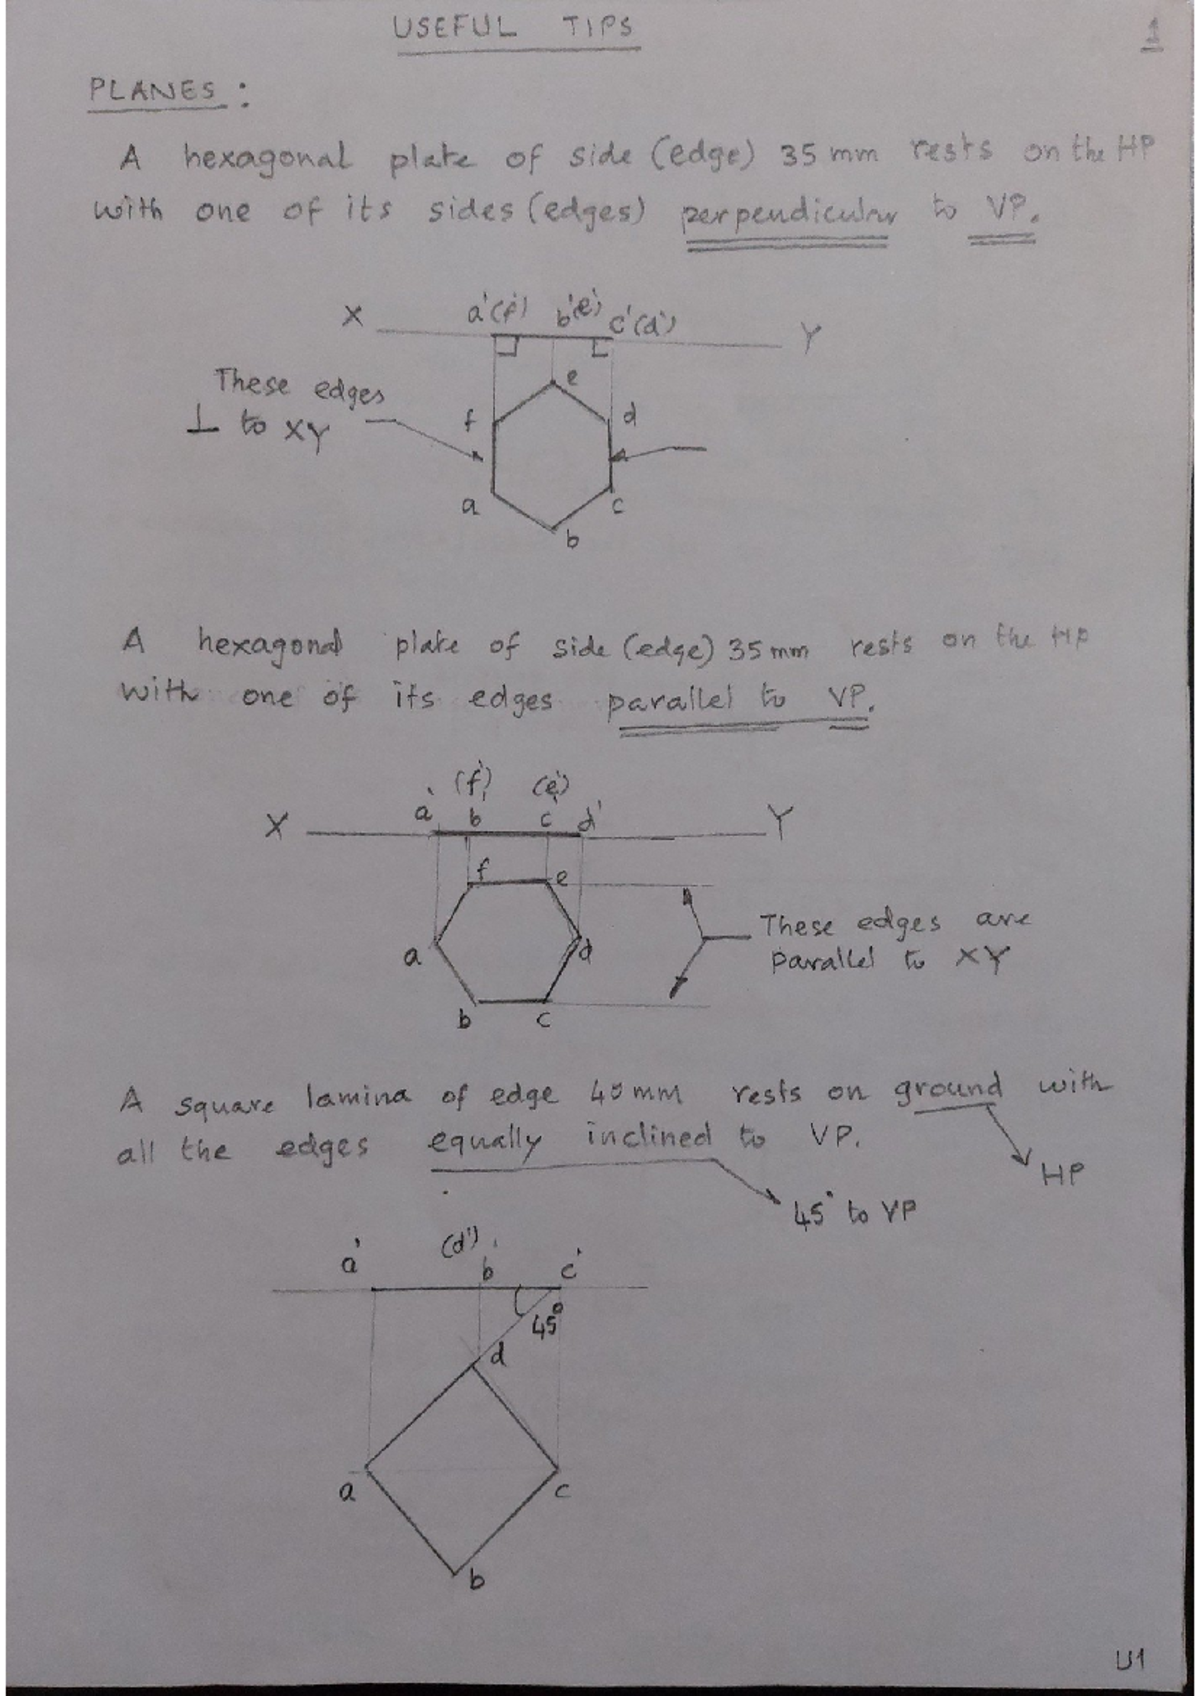 USEFUL TIPS
1
PLANES :
A hexagonal plate of side (edge) 35 mm rests on the HP
with one of its sides (edges) perpendicular to VP.
X a'(f') b'(e') c'(d') Y
These edges
⊥ to XY
e
f d
a c
b
A hexagonal plate of side (edge) 35 mm rests on the HP
with one of its edges parallel to VP.
(f') (e')
X a' b' c' d' Y
f e
These edges are
a d parallel to XY
b c
A square lamina of edge 40 mm rests on ground with
all the edges equally inclined to VP.
HP
45° to VP
(d')
a' b' c'
45°
d
a c
b
U1